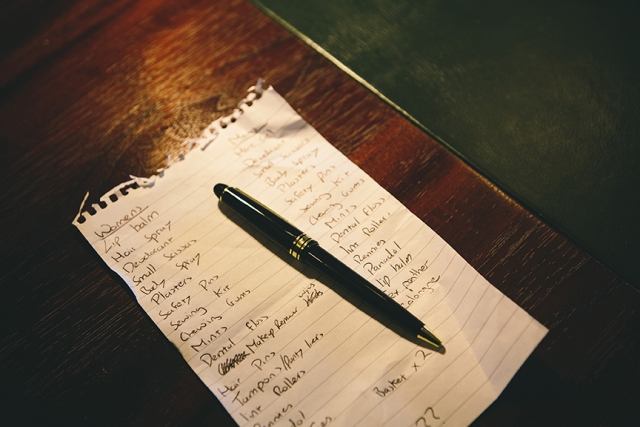 Womens
Lip balm
Hair Spray
Deodorant
Small Scissors
Body Spray
Plasters
Safety Pins
Sewing Kit
Chewing Gum
Mints
Dental Floss
Makeup Remover
Hair Pins
Tampons/Panty liners
Lint Rollers
Rennies
Deodorant
Small Scissors
Body Spray
Plasters
Safety Pins
Sewing Kit
Chewing Gum
Mints
Dental Floss
Lint Rollers
Rennies
Panadol
lip balm
Basket x 2
??